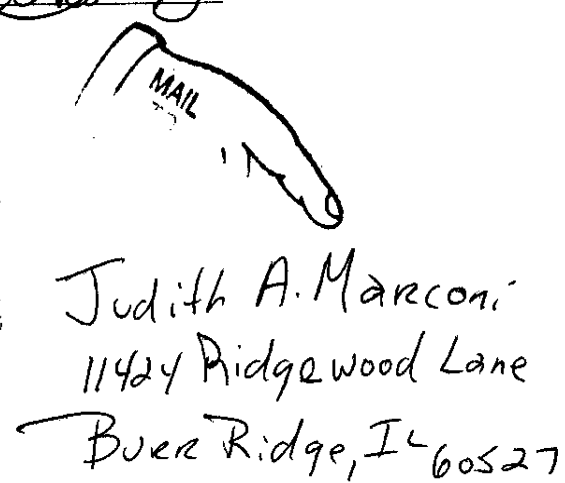 MAIL
Judith A. Marconi
11424 Ridgewood Lane
Burr Ridge, IL 60527